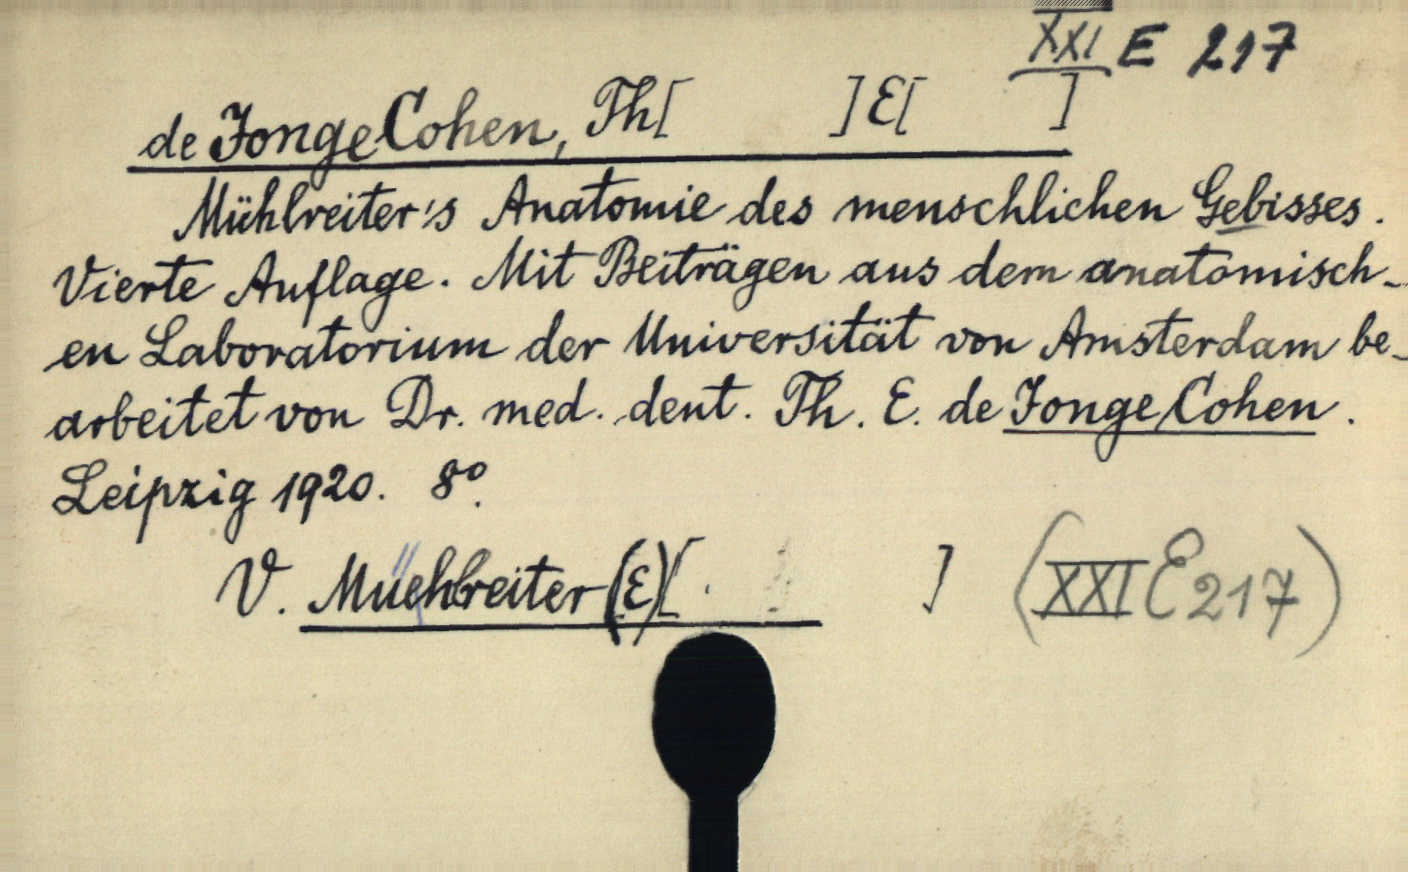 XXI E 217
de Jonge Cohen, Th[ ] E[ ]
Mühlreiter's Anatomie des menschlichen Gebisses.
Vierte Auflage. Mit Beiträgen aus dem anatomisch-
en Laboratorium der Universität von Amsterdam be-
arbeitet von Dr. med. dent. Th. E. de Jonge Cohen.
Leipzig 1920. 8º.
V. Muehlreiter (E)[ ] (XXI E 217)